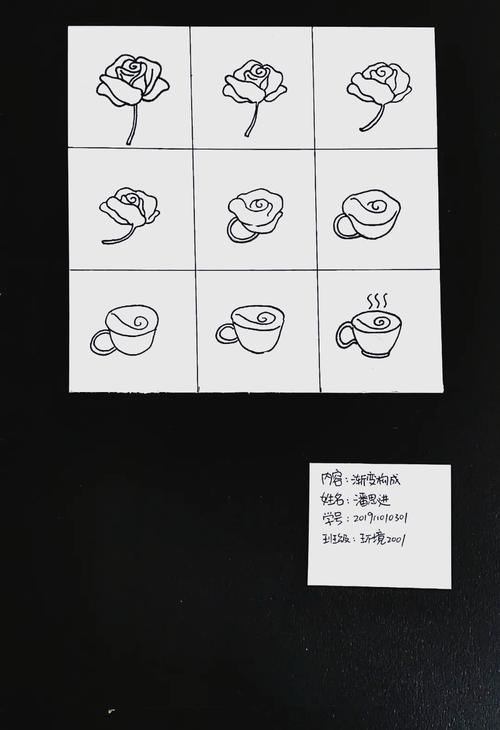 内容：渐变构成
姓名：潘思进
学号：201911010301
班级：环境2001